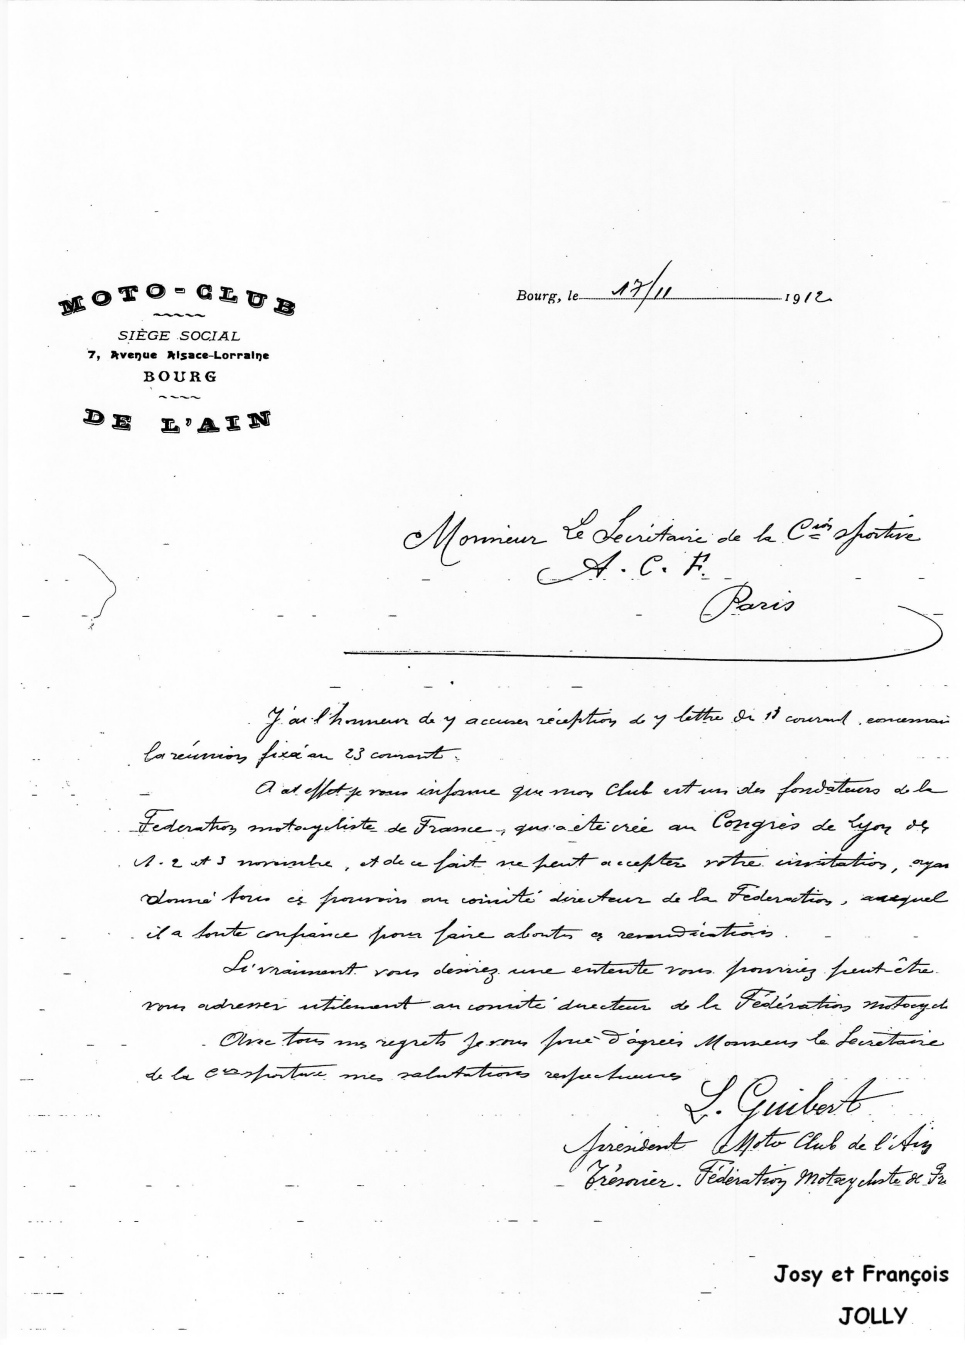 MOTO-CLUB
SIÈGE SOCIAL
7, Avenue Alsace-Lorraine
BOURG
DE L'AIN
Bourg, le 17/11 1912
Monsieur Le Secrétaire de la Cion sportive
A. C. F.
Paris
J'ai l'honneur de accuser réception de lettre du courant, concernan
la réunion fixée au 23 courant.
A cet effet je vous informe que mon Club est un des fondateurs de la
Federation motocycliste de France, qui a été crée au Congrès de Lyon des
1. 2 et 3 novembre, et de ce fait ne peut accepter votre invitation, ayan
donné tous ces pouvoirs au comité directeur de la Federation, auquel
il a toute confiance pour faire aboutir ces revendications.
Si vraiment vous desirez une entente vous pourriez peut-être
vous adresser utilement au comité directeur de la Fédération motocycl
Avec tous mes regrets je vous prie d'agréer Monsieur le Secretaire
de la Cion sportive mes salutations respectueuses
L. Guibert
président Moto Club de l'Ain
Trésorier. Fédération Motocycliste de Fr
Josy et François
JOLLY